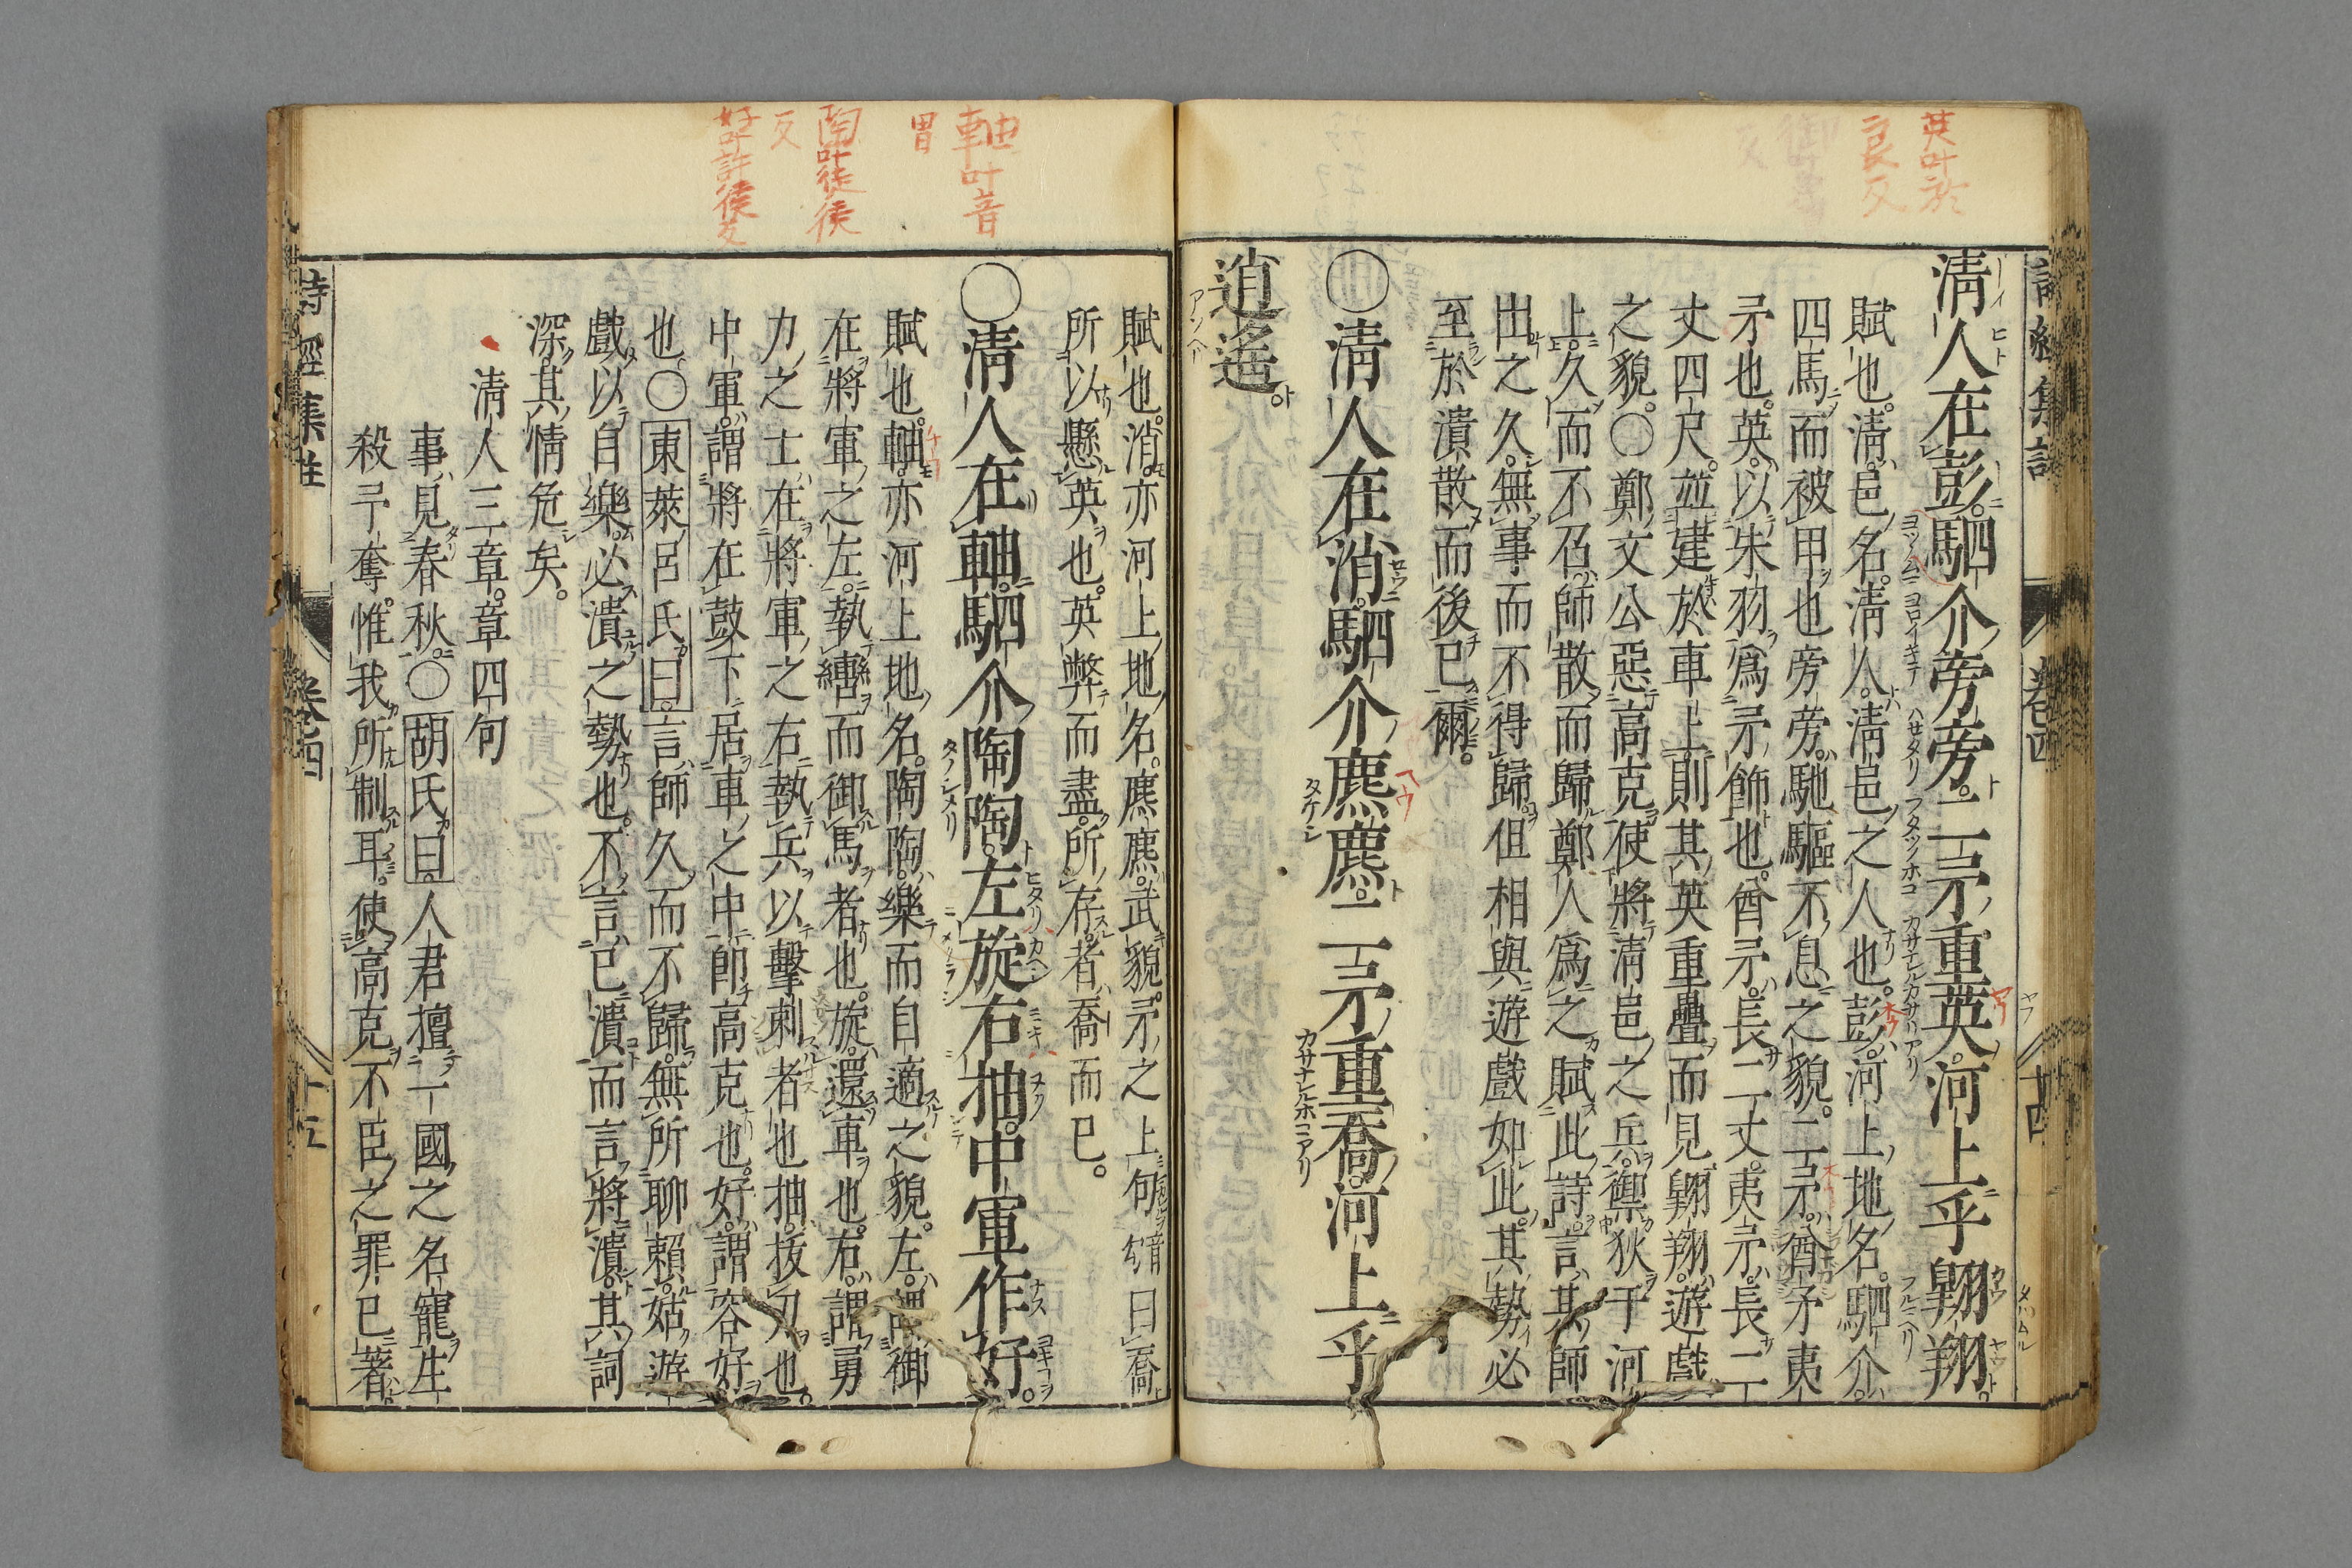 英叶於
良反
清人在彭駟介旁旁二矛重英河上乎翺翔
賦也清邑名清人清邑之人也彭河上地名駟介
四馬而被甲也旁旁馳驅不息之貌二矛酋矛夷
矛也英以朱羽爲矛飾也酋矛長二丈夷矛長二
丈四尺並建於車上則其英重疊而見翺翔遊戲
之貌〇鄭文公惡高克使將清邑之兵禦狄于河
上久而不召師散而歸鄭人爲之賦此詩言其師
出之久無事而不得歸但相與遊戲如此其勢必
至於潰散而後已爾
〇清人在消駟介麃麃二矛重喬河上乎
逍遙
軸叶音
冑
陶叶徒侯
反
好叶許侯反
賦也消亦河上地名麃麃武貌矛之上句音曰喬
所以懸英也英弊而盡所存者喬而已
〇清人在軸駟介陶陶左旋右抽中軍作好
賦也軸亦河上地名陶陶樂而自適之貌左謂御
在將軍之左執轡而御馬者也旋還車也右謂勇
力之士在將軍之右執兵以擊刺者也抽拔刃也
中軍謂將在鼓下居車之中卽高克也好謂容好
也〇東萊呂氏曰言師久而不歸無所聊賴姑遊
戲以自樂必潰之勢也不言已潰而言將潰其詞
深其情危矣
清人三章章四句
事見春秋〇胡氏曰人君擅一國之名寵生
殺予奪惟我所制耳使高克不臣之罪已著
詩經集註
卷四